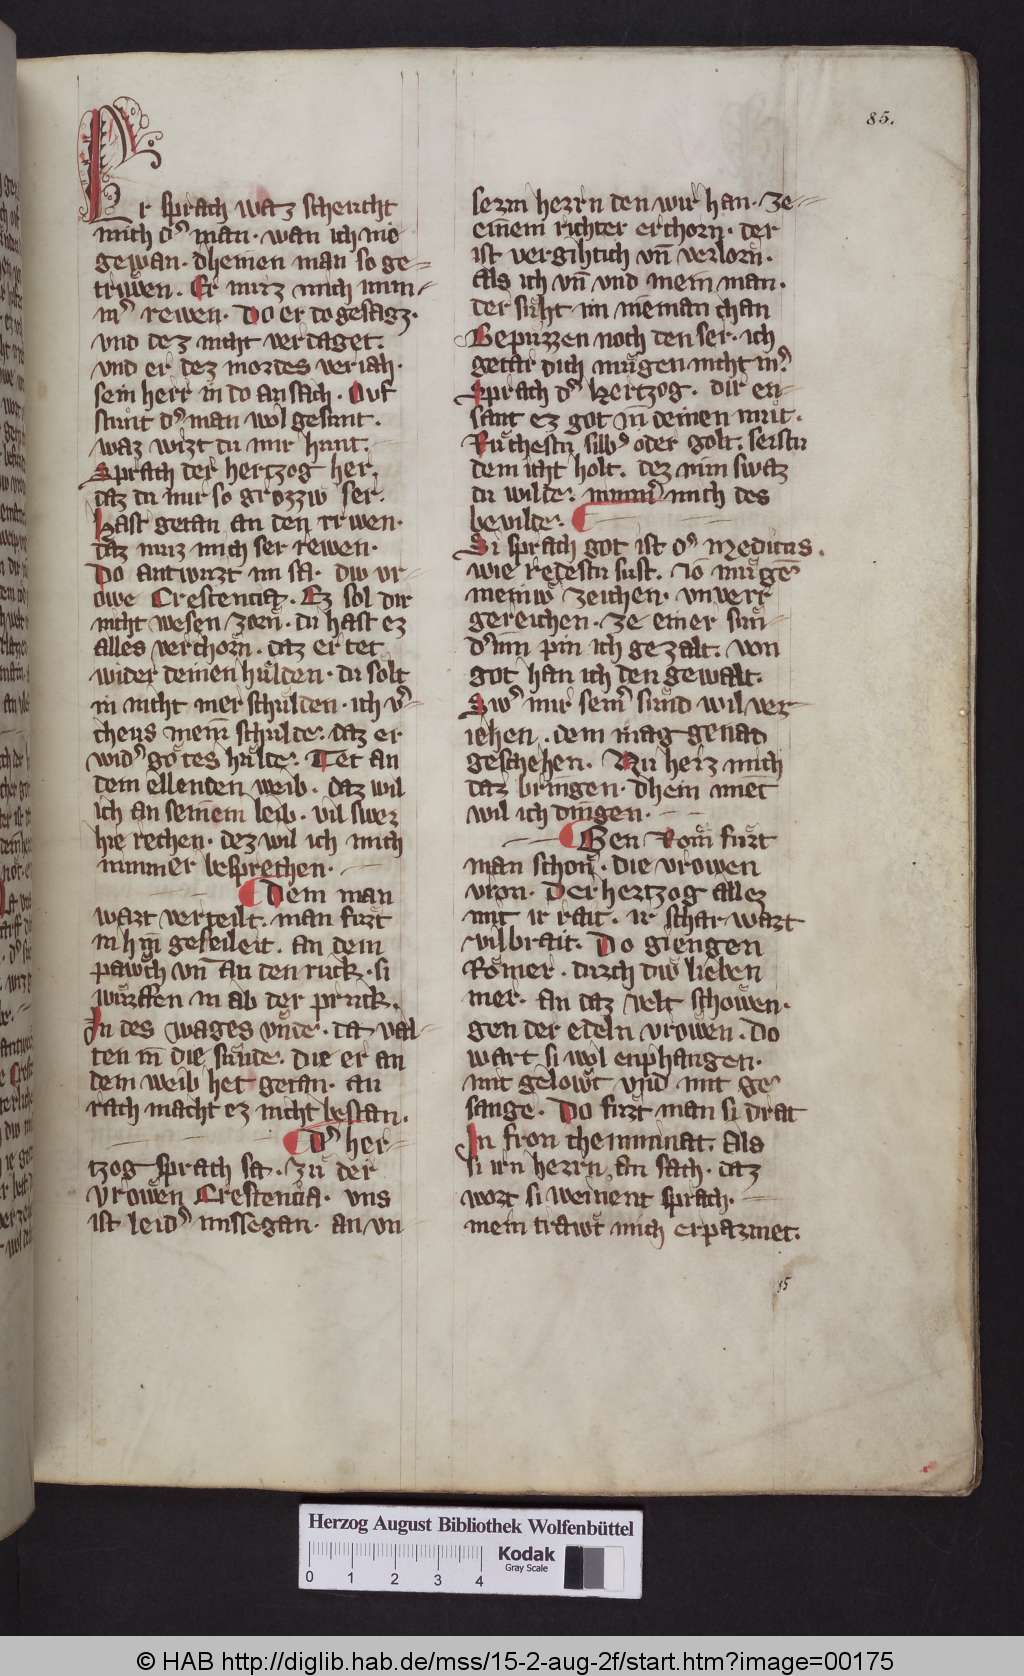 85.
Er sprach waz scheucht
mich dˢ man · wan ich nie
gewan · dheinen man so ge=
trwͤen . Er muz mich imm=
mˢ rewen · Do er do gesagz ·
vnd dez nicht verdaget .
vnd er dez mordes veriach ·
sein herr in do an sach · Auf
stuͤnt dˢ man wol gesunt .
waz wizt du mir hunt .
Sprach der hertzog her .
daz du mir so grozziv ser .
Hast getan an den trwen ·
daz muz mich ser rewen ·
Do antwurt im sa · div vr=
owe Crescencia . Ez sol dir
nicht wesen zorn̄ · du hast ez
alles verchorn̄ . daz er tet
wider deinen huͤlden · du solt
in nicht mer schulden · ich vˢ=
cheus mein̄ schulde . daz er
widˢ gotes hulde . Tet an
dem ellenden weib . daz wil
ich an seinem leib . vil swer
hie rechen · dez wil ich mich
nimmer besprechen ·
Dem man
wart verteilt . man furt
in hin geseileit . an dem
pawch vn̄ an den ruck . si
wurffen in ab der pruck .
In des wages vnde . da val=
ten in̄ die sunde . die er an
dem weib het getan · an
rach macht ez nicht bestan .
Dˢ her=
tzog sprach sa . zu der
vrowen Crescencia · vns
ist leidˢ missegan · an vn
serm herrn den wir han · ze=
einem richter erchorn · der
ist vergihtich vn̄ verlorn̄ .
Als ich vn̄ vnd mein man .
der suht im nieman chan
Gepuzzen noch den ser · ich
getar dich mugen nicht mˢ
Sprach dˢ hertzog . dir en=
sant ez got in deinen mut .
Ruͤchestu silbˢ oder golt . seistu
dem icht holt . dez nim swaz
du wilde . nimmˢ mich des
bevilde .
Si sprach got ist dˢ medicus .
wie redestu sust . io mugē
meiniv zeichen · vnverr
gereichen · ze einer sun
dˢinn pin ich gezalt . von
got han ich den gewalt .
Swˢ mir seinˢ sund wil ver
iehen . dem mag genad
geschehen . Nu herz mich
daz bringen · dhein miet
wil ich dingen ·
Gen Rom furt
man schon̄ · die vrowen
vron . Der hertzog allez
mit ir rait . ir schar wart
vil brait . Do giengen
Romer . durch div lieben
mer . an daz velt schowen .
gen der edeln vrowen . Do
wart si wol enphangen ·
mit gelowt vnd mit ge
sange . Do furt man si drat
In fron cheminnat . Als
si irn herrn an sach · daz
wort si weinent sprach ·
mein trawt mich erparmet .
85
Herzog August Bibliothek Wolfenbüttel
Kodak
Gray Scale
0 1 2 3 4
© HAB http://diglib.hab.de/mss/15-2-aug-2f/start.htm?image=00175